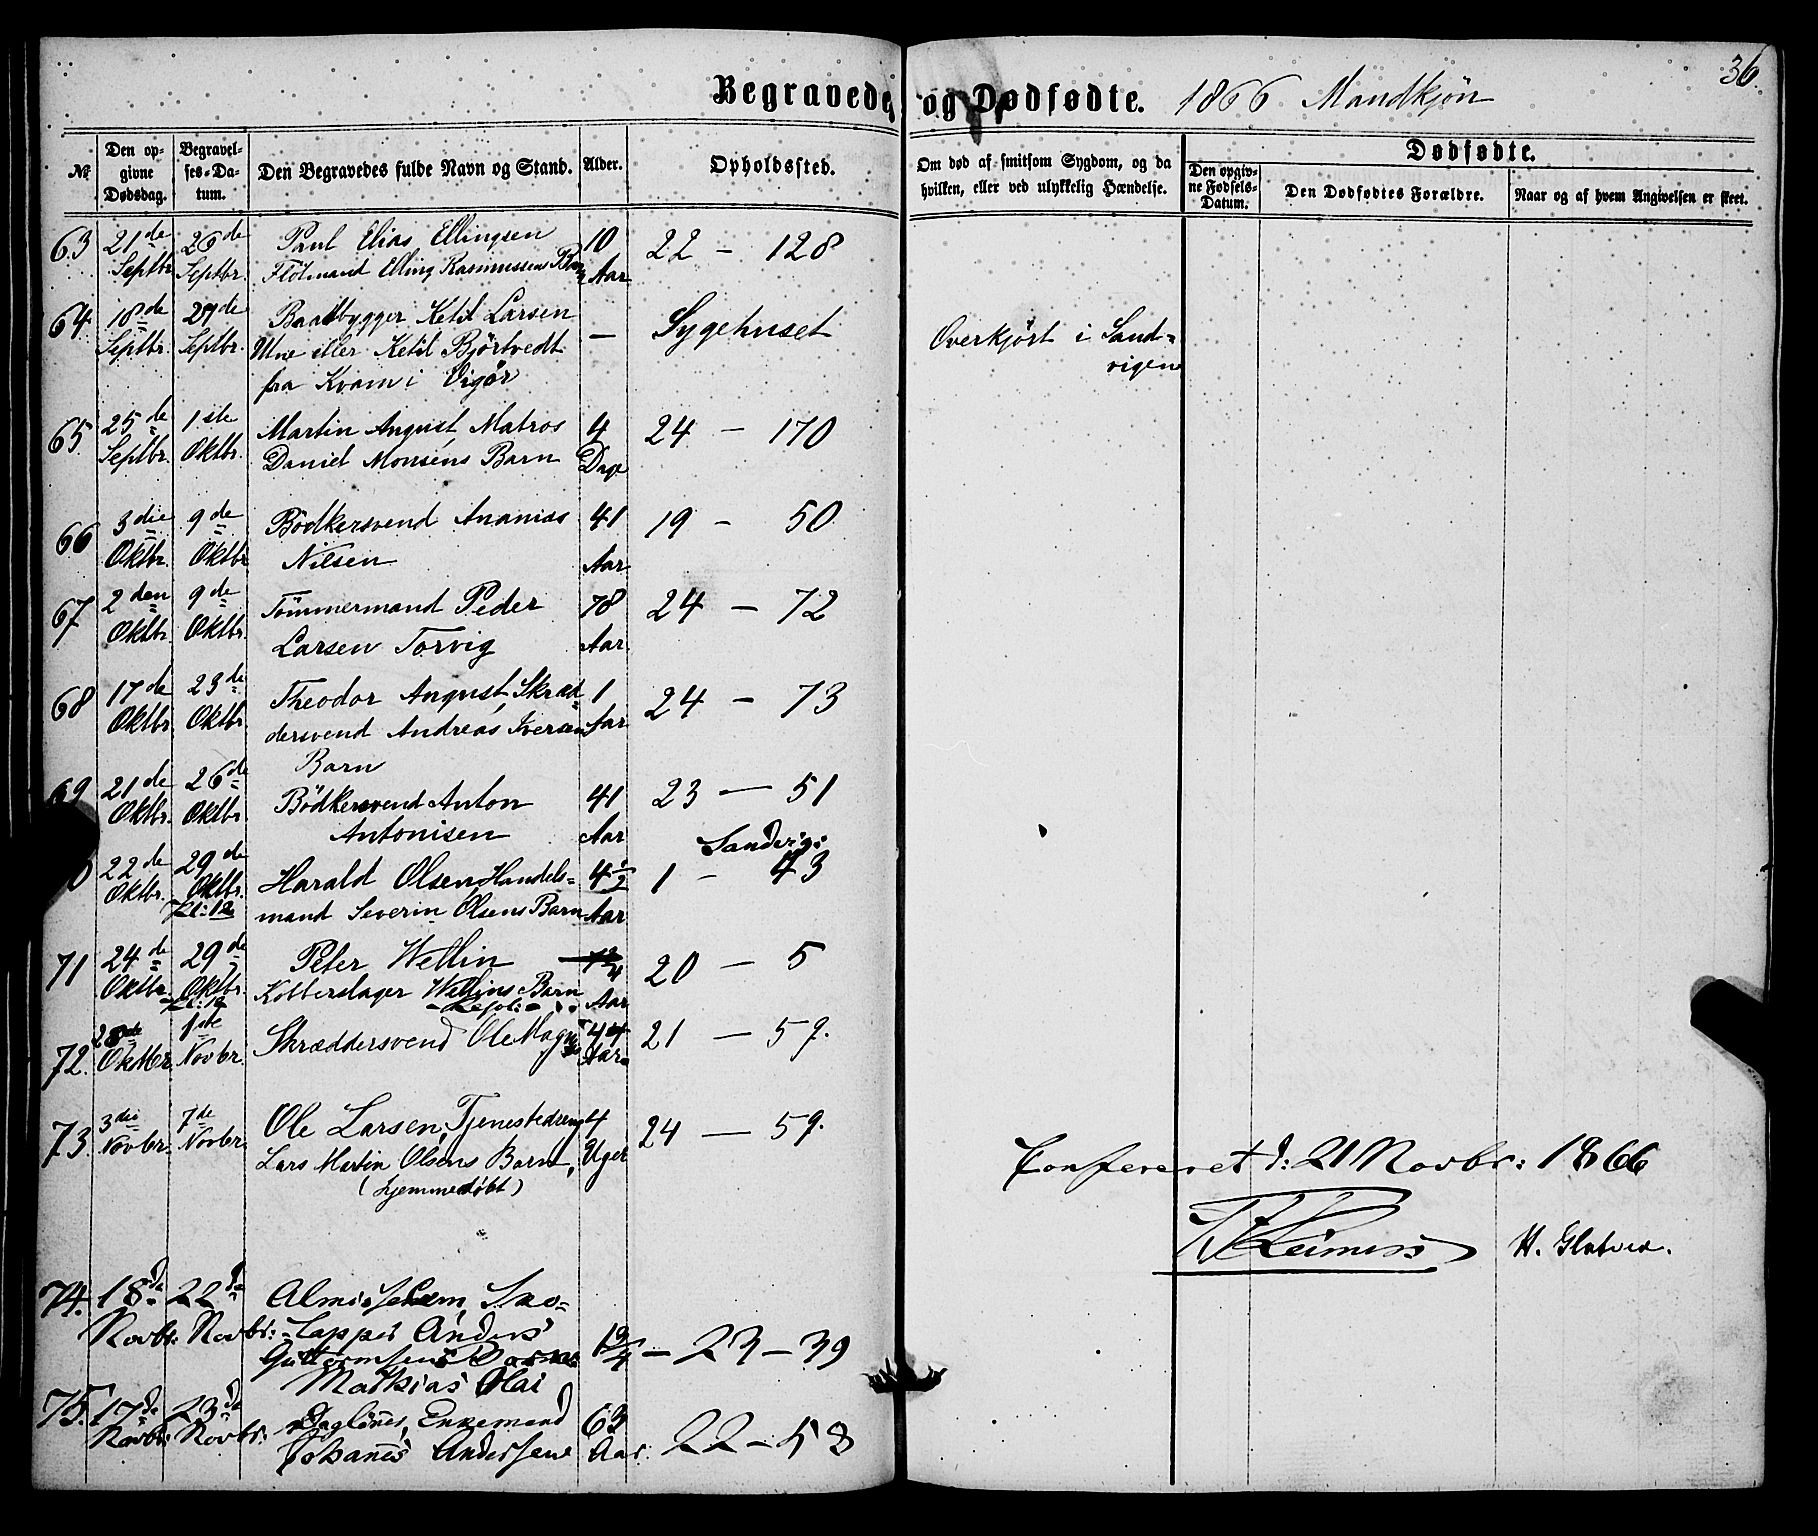 36.
Begravede og Dødfødte. 1866 Mandkjøn
№
Den op-
givne
Dødsdag.
Begravel-
ses-Da-
tum.
Den Begravedes fulde Navn og Stand.
Alder.
Opholdssted.
Om død af smitsom Sygdom, og da
hvilken, eller ved ulykkelig Hændelse.
Dødfødte.
Den opgiv-
ne Fødsels-
Datum.
Den Dødfødtes Forældre.
Naar og af hvem Angivelsen er skeet.
63 21de 26de Paul Elias, Ellingsen 10 22 - 128
Septbr. Septbr. Flödmand Elling Rasmussens Barn Aar
64 18de 27de Baadbygger Ketil Larsen — Sygehuset Overkjört i Sand-
Septbr. Septbr. Utne eller Ketil Björtvedt vigen
fra Kvam i Vigör
65 25de 1ste Martin August, Matros 4 24 - 170
Septbr. Oktbr. Daniel Monsens Barn Dage
66 3die 9de Bödkersvend Ananias 41 19 - 50
Oktbr. Oktbr Nilsen Aar
67 2den 9de Tömmermand Peder 78 24 - 72
Oktbr. Oktbr. Larsen Torvig Aar
68 17de 23de Theodor August, Skræd- 1 24 - 73
Oktbr. Oktbr. dersvend Andreas Iversens Aar
Barn
69 21de 26de Bödkersvend Anton 41 23 - 51
Oktbr. Oktbr. Antonisen Aar
Sandvig:
0 22de 29de Harald Olsen, Handels- 4½ 1 - 43
Oktbr. Oktbr. mand Severin Olsens Barn Aar
Kl: 12
71 24de 29de Peter Wellin 20 - 5
Oktbr. Oktbr. Kobberslager Wellins Barn Aar
Kl: 12
72. 28de 1ste Skræddersvend Ole 44 21 - 59.
Oktbr. Novbr. Aar
73. 3die 7de Ole Larsen, Tjenestedreng 4 24 - 59.
Novbr. Novbr. Lars Martin Olsens Barn, Uger
(hjemmedöbt)
Konfereret d: 21 Novbr: 1866
H.
74. 18de 22de
Novbr. Novbr: Anders 1¾ - 23 - 39
Guttormsens
Mathias Olai
75. 17de 23de Daglönner, Enkemand 63 22 - 58
Novbr: Novbr: Johanes Andersen Aar.